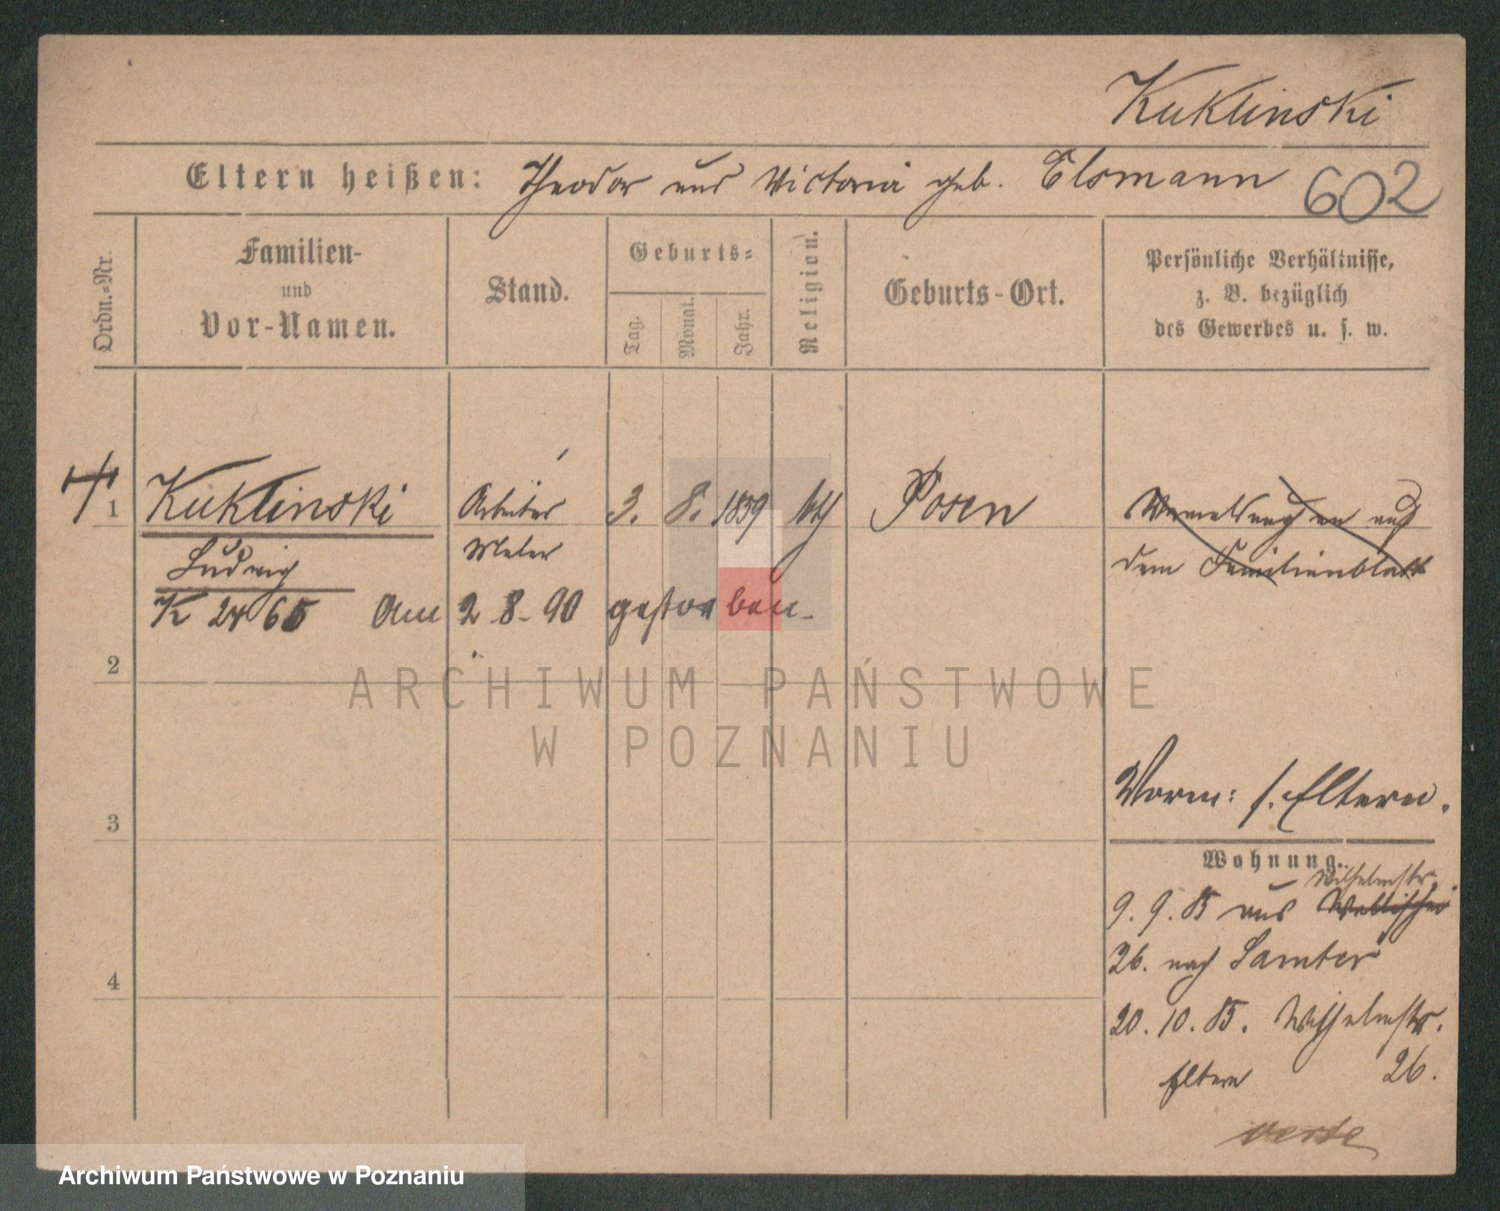 Kuklinski
Eltern heißen: Theodor und Victoria geb. Elsmann 602
Ordn.-Nr.
Familien-
und
Vor-Namen.
Stand.
Geburts-
Tag.
Monat.
Jahr.
Religion.
Geburts-Ort.
Persönliche Verhältnisse,
z. B. bezüglich
des Gewerbes u. s. w.
1 Kuklinski Arbeiter 3. 8. 1859 kth Posen
Ludwig Maler
dem Familienblatt
K 2465 Am 2.8.90 gestorben
2
ARCHIWUM PAŃSTWOWE
W POZNANIU
3
Vorm: s. Eltern.
Wohnung.
Wilhelmstr.
9. 9. 85 aus Wallischei
26. nach Samter
4
20. 10. 85. Wilhelmstr.
Eltern 26.
verte
Archiwum Państwowe w Poznaniu